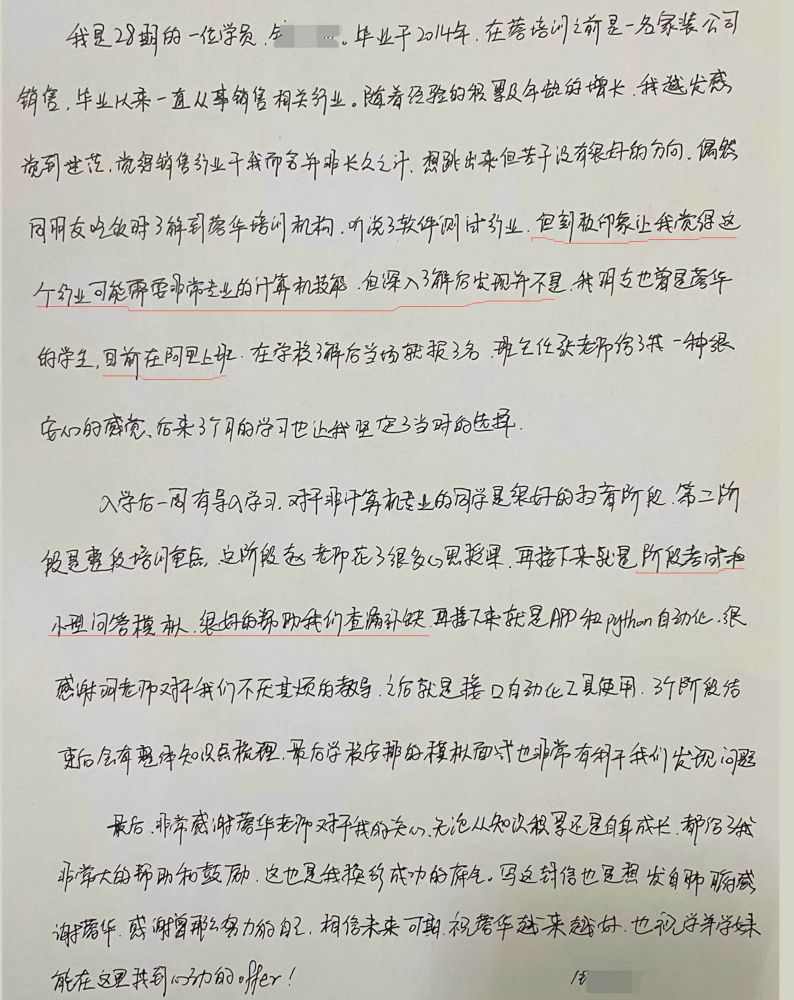 我是28期的一位学员,。毕业于2014年,在蓉培训之前是一名家装公司
销售,毕业以来一直从事销售相关行业。随着经验的积累及年龄的增长,我越发感
觉到迷茫,觉得销售行业于我而言并非长久之计,想跳出来但苦于没有很好的方向,偶然
同朋友吃饭时了解到蓉华培训机构,听说了软件测试行业,但刻板印象让我觉得这
个行业可能需要非常专业的计算机技能,但深入了解后发现并不是,我朋友也曾是蓉华
的学生,目前在阿里上班,在学校了解后当场就报了名,班主任张老师给了我一种很
安心的感觉,后来3个月的学习也让我坚定了当时的选择.
入学后一周有导入学习,对于非计算机专业的同学是很好的扫盲阶段,第二阶
段是整段培训重点,这阶段赵老师花了很多心思授课,再接下来就是阶段考试和
小型问答模拟,很好的帮助我们查漏补缺,再接下来就是APP和python自动化,很
感谢老师对于我们不厌其烦的教导,之后就是接口自动化工具使用,3个阶段结
束后会有整体知识点梳理,最后学校安排的模拟面试也非常有利于我们发现问题
最后,非常感谢蓉华老师对于我的关心,无论从知识积累还是自身成长,都给了我
非常大的帮助和鼓励,这也是我换行成功的底气。写这封信也是想发自肺腑感
谢蓉华,感谢曾那么努力的自己,相信未来可期,祝蓉华越来越好,也祝学弟学妹
能在这里找到心动的offer!